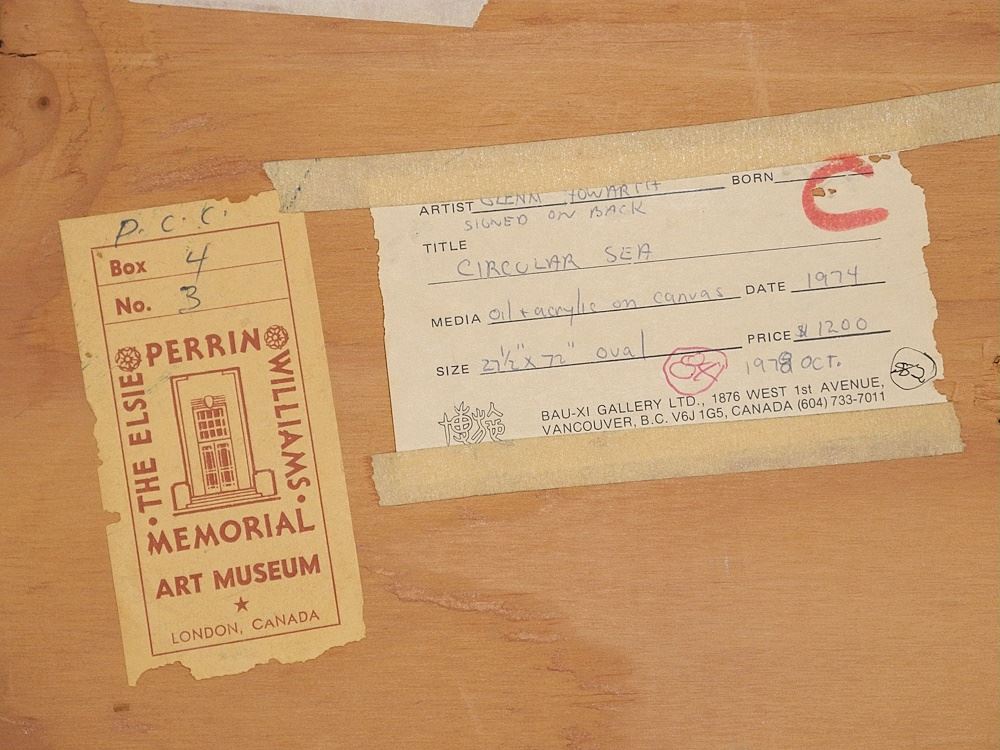 P. C. C.
Box 4
No. 3
THE ELSIE PERRIN WILLIAMS
MEMORIAL
ART MUSEUM
LONDON, CANADA
ARTIST GLENN HOWARTH BORN
SIGNED ON BACK
TITLE
CIRCULAR SEA
MEDIA oil + acrylic on canvas DATE 1974
SIZE 27½" X 72" oval PRICE $1200
1978 OCT.
BAU-XI GALLERY LTD., 1876 WEST 1st AVENUE,
VANCOUVER, B.C. V6J 1G5, CANADA (604) 733-7011
C